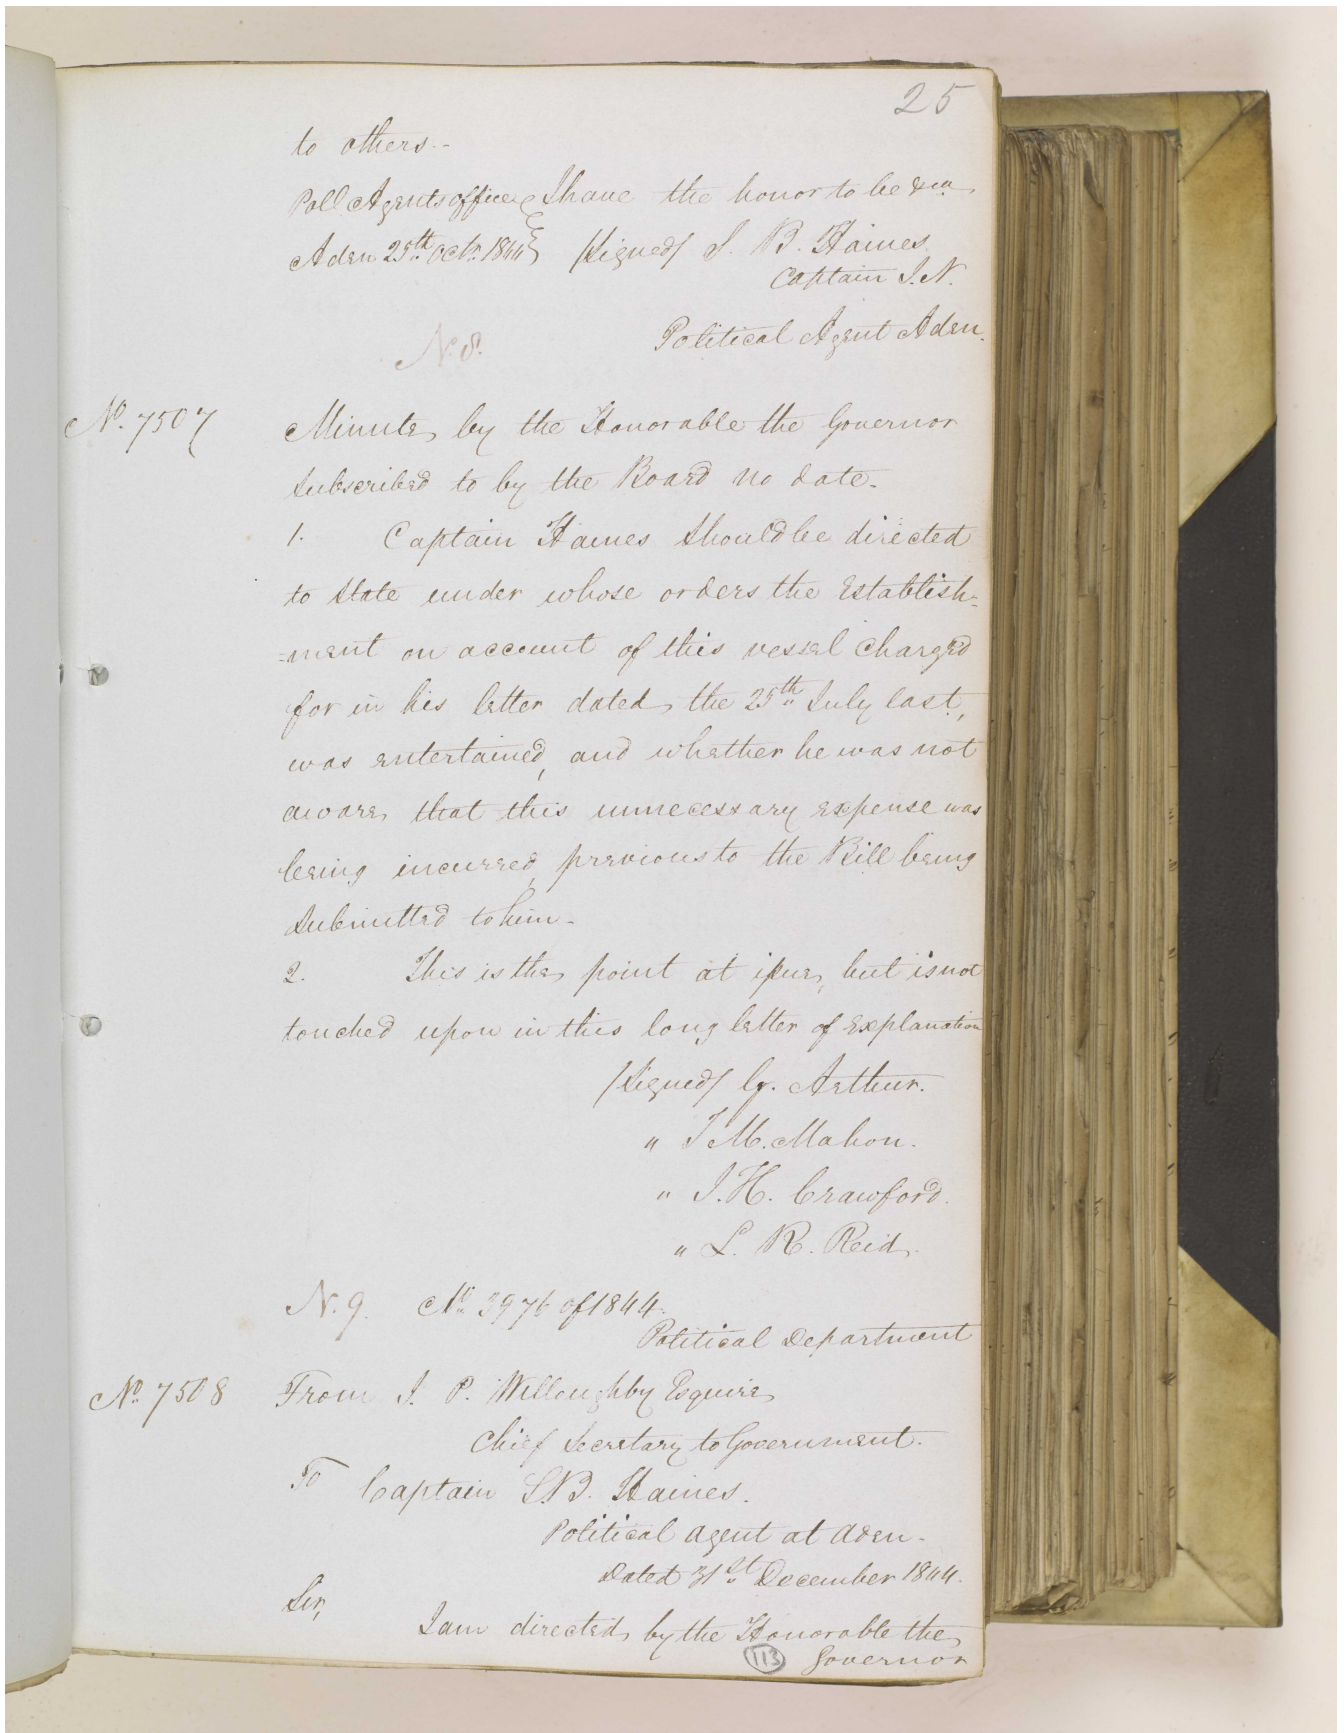 25
to others.-
Poll Agents office I have the honor to be &ca
Aden 25th Octr. 1844 /Signed/ S. B. Haines.
Captain I.N.
Political Agent Aden.
N. 8.
No. 7507
Minute by the Honorable the Governor
subscribed to by the Board no date.
1. Captain Haines should be directed
to state under whose orders the Establish-
-ment on account of this vessel charged
for in his letter dated the 25th July last,
was entertained, and whether he was not
aware that this unnecessary expense was
being incurred, previous to the Bill being
submitted to him-
2. This is the point at issue, but is not
touched upon in this long letter of explanation
/Signed/ G. Arthur.
" T. McMahon.
" J. H. Crawford.
" L. R. Reid.
N. 9. No. 3976 of 1844.
Political Department
No. 7508 From J. P. Willoughby Esquire
Chief Secretary to Government.
To Captain S. B. Haines.
Political Agent at Aden-
Dated 31st December 1844.
Sir,
I am directed by the Honorable the
Governor
113